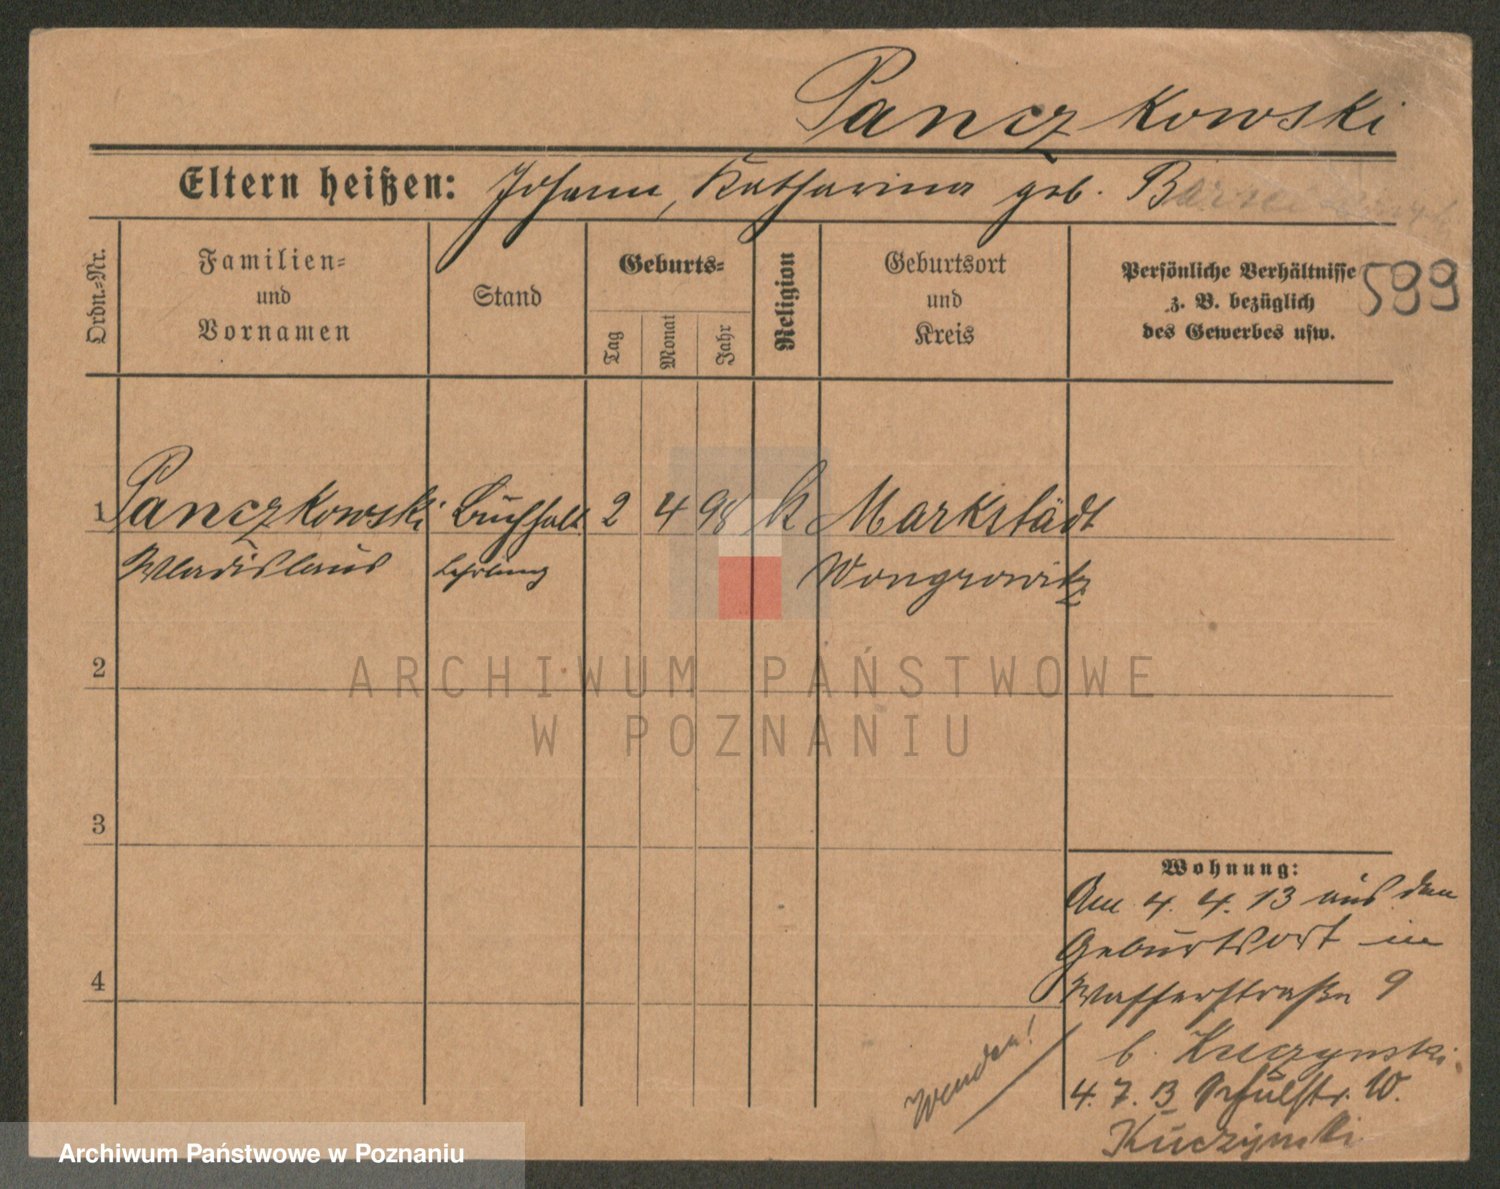 Panczkowski
Eltern heißen: Johann, Katharina geb.
Ordn.-Nr.
Familien-
und
Vornamen
Stand
Geburts-
Tag
Monat
Jahr
Religion
Geburtsort
und
Kreis
Persönliche Verhältnisse
z. B. bezüglich
des Gewerbes usw.
599
1 Panczkowski Buchhalt 2 4 98 k Markstädt
Wladislaus Lehrling Wongrowitz
2
3
4
ARCHIWUM PAŃSTWOWE
W POZNANIU
Wohnung:
Am 4. 4. 13 aus dem
Geburtsort in
Wasserstraße 9
b. Kuczynski
4. 7. 13 Schulstr. 10.
Kuczynski
Wenden!
Archiwum Państwowe w Poznaniu